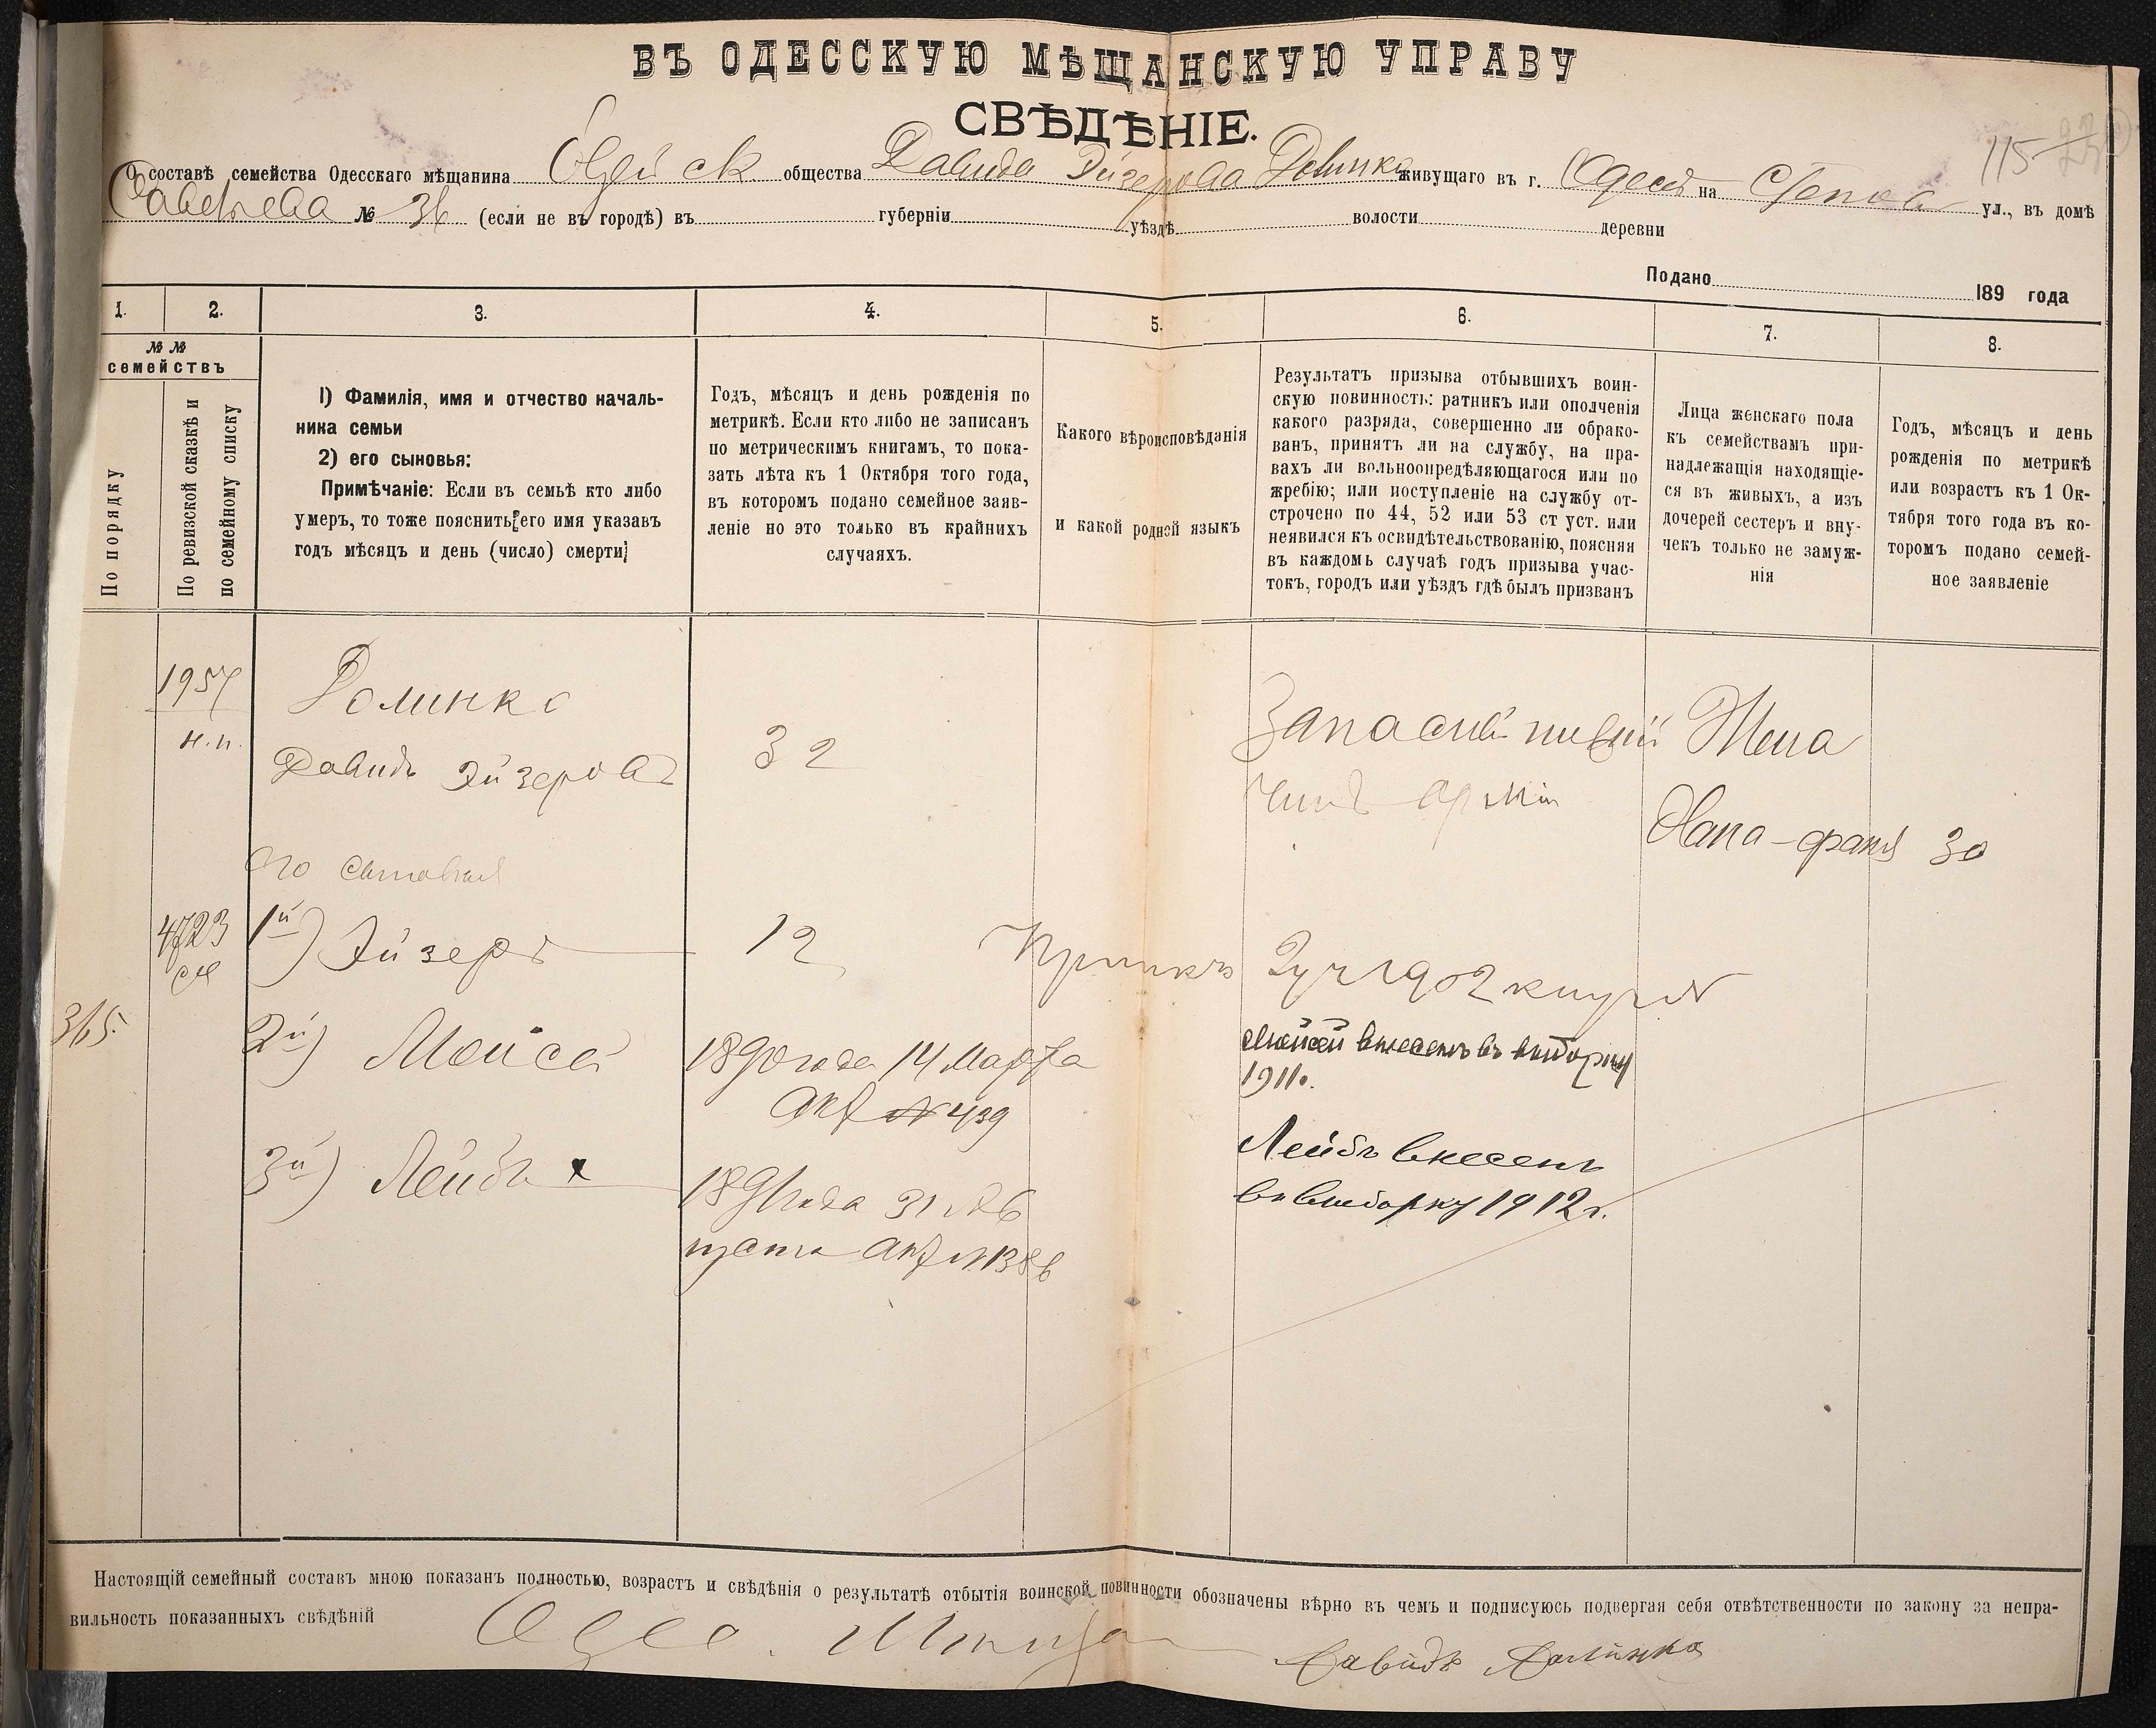 ВЪ ОДЕССКУЮ МѢЩАНСКУЮ УПРАВУ
СВѢДѢНІЕ.
115
О составѣ семейства Одесскаго мѣщанина Одес ск общества Давида Эйзерова Долинко живущаго въ г. Одессѣ на Степовой ул., въ домѣ
Савельева № 36 (если не въ городѣ) въ губерніи уѣздѣ волости деревни
Подано 189 года
1. 2. 3. 4. 5. 6. 7. 8.
№ №
семействъ
По порядку
По ревизской сказкѣ и
по семейному списку
1) Фамилія, имя и отчество началь-
ника семьи
2) его сыновья:
Примѣчаніе: Если въ семьѣ кто либо
умеръ, то тоже пояснить его имя указавъ
годъ мѣсяцъ и день (число) смерти
Годъ, мѣсяцъ и день рожденія по
метрикѣ. Если кто либо не записанъ
по метрическимъ книгамъ, то пока-
зать лѣта къ 1 Октября того года,
въ которомъ подано семейное заяв-
леніе но это только въ крайнихъ
случаяхъ.
Какого вѣроисповѣданія
и какой родной языкъ
Результатъ призыва отбывшихъ воин-
скую повинность: ратникъ или ополченія
какого разряда, совершенно ли обрако-
ванъ, принятъ ли на службу, на пра-
вахъ ли вольноопредѣляющагося или по
жребію; или поступленіе на службу от-
строчено по 44, 52 или 53 ст уст. или
неявился къ освидѣтельствованію, поясняя
въ каждомъ случаѣ годъ призыва учас-
токъ, городъ или уѣздъ гдѣ былъ призванъ
Лица женскаго пола
къ семействамъ при-
надлежащія находящіе-
ся въ живыхъ, а изъ
дочерей сестеръ и вну-
чекъ только не замуж-
нія
Годъ, мѣсяцъ и день
рожденія по метрикѣ
или возрастъ къ 1 Ок-
тября того года въ ко-
торомъ подано семей-
ное заявленіе
1957
н.п.
Долинко
Давидъ Эйзеровъ
32
Запасный нижній
чинъ арміи
Жена
Хана-фаня 30
его сыновья
4723
1й) Эйзеръ
12
365.
2й) Мойсей
1890 года 14 Марта
Акт № 439
Мойсей внесенъ въ выборку
1911г.
3й) Лейбъ x
1891 года 31 Ав
густа Акт № 1386
Лейбъ внесенъ
въ выборку 1912г.
Настоящій семейный составъ мною показанъ полностью, возрастъ и свѣдѣнія о результатѣ отбытія воинской повинности обозначены вѣрно въ чемъ и подписуюсь подвергая себя отвѣтственности по закону за непра-
вильность показанныхъ свѣдѣній
Давидъ Долинко